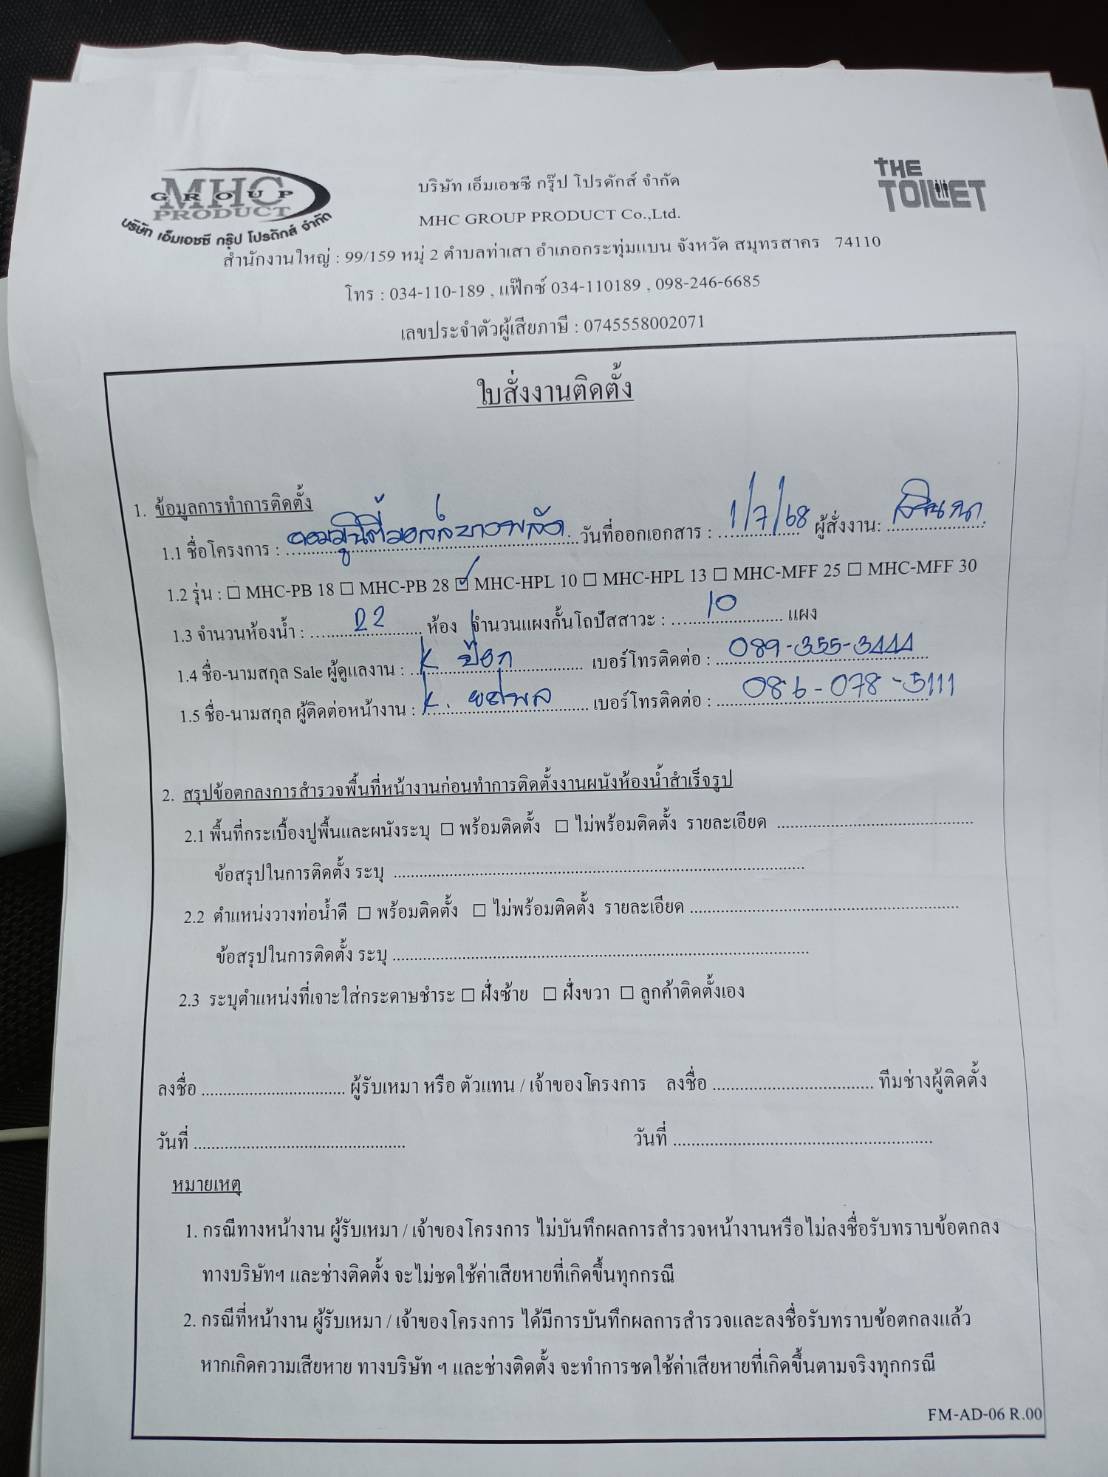 MHC
GROUP
PRODUCT
บริษัท เอ็มเอชซี กรุ๊ป โปรดักส์ จำกัด
THE
TOILET
บริษัท เอ็มเอชซี กรุ๊ป โปรดักส์ จำกัด
MHC GROUP PRODUCT Co.,Ltd.
สำนักงานใหญ่ : 99/159 หมู่ 2 ตำบลท่าเสา อำเภอกระทุ่มแบน จังหวัด สมุทรสาคร 74110
โทร : 034-110-189 , แฟ๊กซ์ 034-110189 , 098-246-6685
เลขประจำตัวผู้เสียภาษี : 0745558002071
ใบสั่งงานติดตั้ง
1. ข้อมูลการทำการติดตั้ง
1.1 ชื่อโครงการ : คอมมูนิตี้มอลล์บางพลัด วันที่ออกเอกสาร : 1/7/68 ผู้สั่งงาน:
1.2 รุ่น : ☐ MHC-PB 18 ☐ MHC-PB 28 ☑ MHC-HPL 10 ☐ MHC-HPL 13 ☐ MHC-MFF 25 ☐ MHC-MFF 30
1.3 จำนวนห้องน้ำ : 22 ห้อง จำนวนแผงกั้นโถปัสสาวะ : 10 แผง
1.4 ชื่อ-นามสกุล Sale ผู้ดูแลงาน : K ป๊อก เบอร์โทรติดต่อ : 089-355-3444
1.5 ชื่อ-นามสกุล ผู้ติดต่อหน้างาน : K. ยศพล เบอร์โทรติดต่อ : 086-078-5111
2. สรุปข้อตกลงการสำรวจพื้นที่หน้างานก่อนทำการติดตั้งงานผนังห้องน้ำสำเร็จรูป
2.1 พื้นที่กระเบื้องปูพื้นและผนังระบุ ☐ พร้อมติดตั้ง ☐ ไม่พร้อมติดตั้ง รายละเอียด
ข้อสรุปในการติดตั้ง ระบุ
2.2 ตำแหน่งวางท่อน้ำดี ☐ พร้อมติดตั้ง ☐ ไม่พร้อมติดตั้ง รายละเอียด
ข้อสรุปในการติดตั้ง ระบุ
2.3 ระบุตำแหน่งที่เจาะใส่กระดาษชำระ ☐ ฝั่งซ้าย ☐ ฝั่งขวา ☐ ลูกค้าติดตั้งเอง
ลงชื่อ ผู้รับเหมา หรือ ตัวแทน / เจ้าของโครงการ ลงชื่อ ทีมช่างผู้ติดตั้ง
วันที่ วันที่
หมายเหตุ
1. กรณีทางหน้างาน ผู้รับเหมา / เจ้าของโครงการ ไม่บันทึกผลการสำรวจหน้างานหรือไม่ลงชื่อรับทราบข้อตกลง
ทางบริษัทฯ และช่างติดตั้ง จะไม่ชดใช้ค่าเสียหายที่เกิดขึ้นทุกกรณี
2. กรณีที่หน้างาน ผู้รับเหมา / เจ้าของโครงการ ได้มีการบันทึกผลการสำรวจและลงชื่อรับทราบข้อตกลงแล้ว
หากเกิดความเสียหาย ทางบริษัท ฯ และช่างติดตั้ง จะทำการชดใช้ค่าเสียหายที่เกิดขึ้นตามจริงทุกกรณี
FM-AD-06 R.00